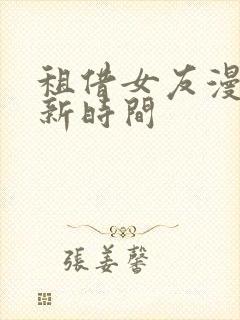 租借女友漫
新時間
張姜馨